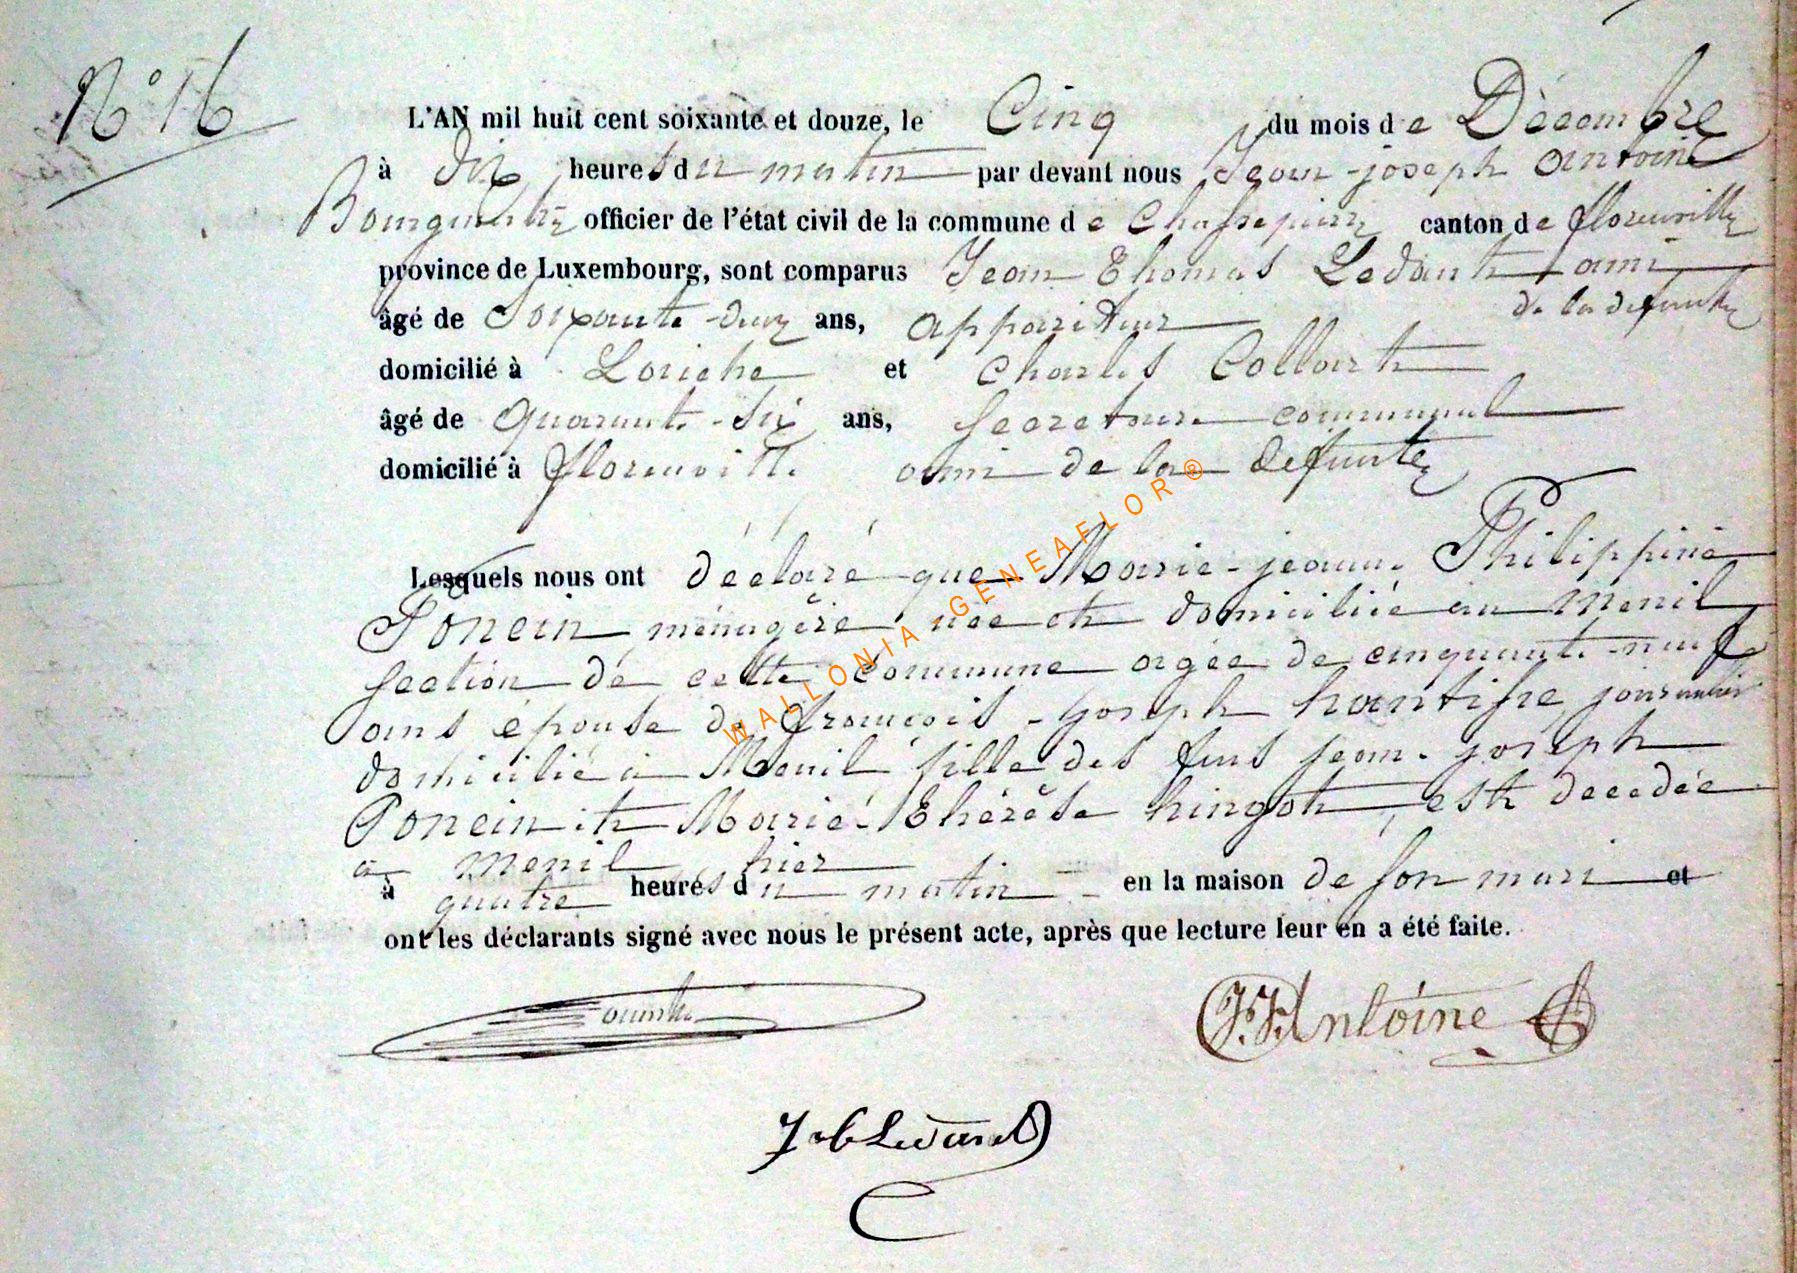 N° 16
L'AN mil huit cent soixante et douze, le Cinq du mois de Décembre
à dix heures du matin par devant nous Jean-joseph Antoine
Bourgmestre officier de l'état civil de la commune de Chassepierre canton de florenville
province de Luxembourg, sont comparus Jean Thomas Ledant ami
de la défunte
âgé de Soixante-deux ans, appariteur
domicilié à Laiche et Charles Collart
âgé de quarante-six ans, secretaire communal
domicilié à florenville ami de la defunte
Lesquels nous ont déclaré que Marie-jeanne Philippine
Poncin ménagère née et domiciliée au menil
section de cette commune agée de cinquante-neuf
ans épouse de françois-joseph hantisse journalier
domicilié à Menil fille des feus jean-joseph
Poncin et Marie-Thérèse hingot, est decedée
à menil hier
à quatre heures du matin en la maison de son mari et
ont les déclarants signé avec nous le présent acte, après que lecture leur en a été faite.
J.J. Antoine
WALLONIA GENEAFLOR ®